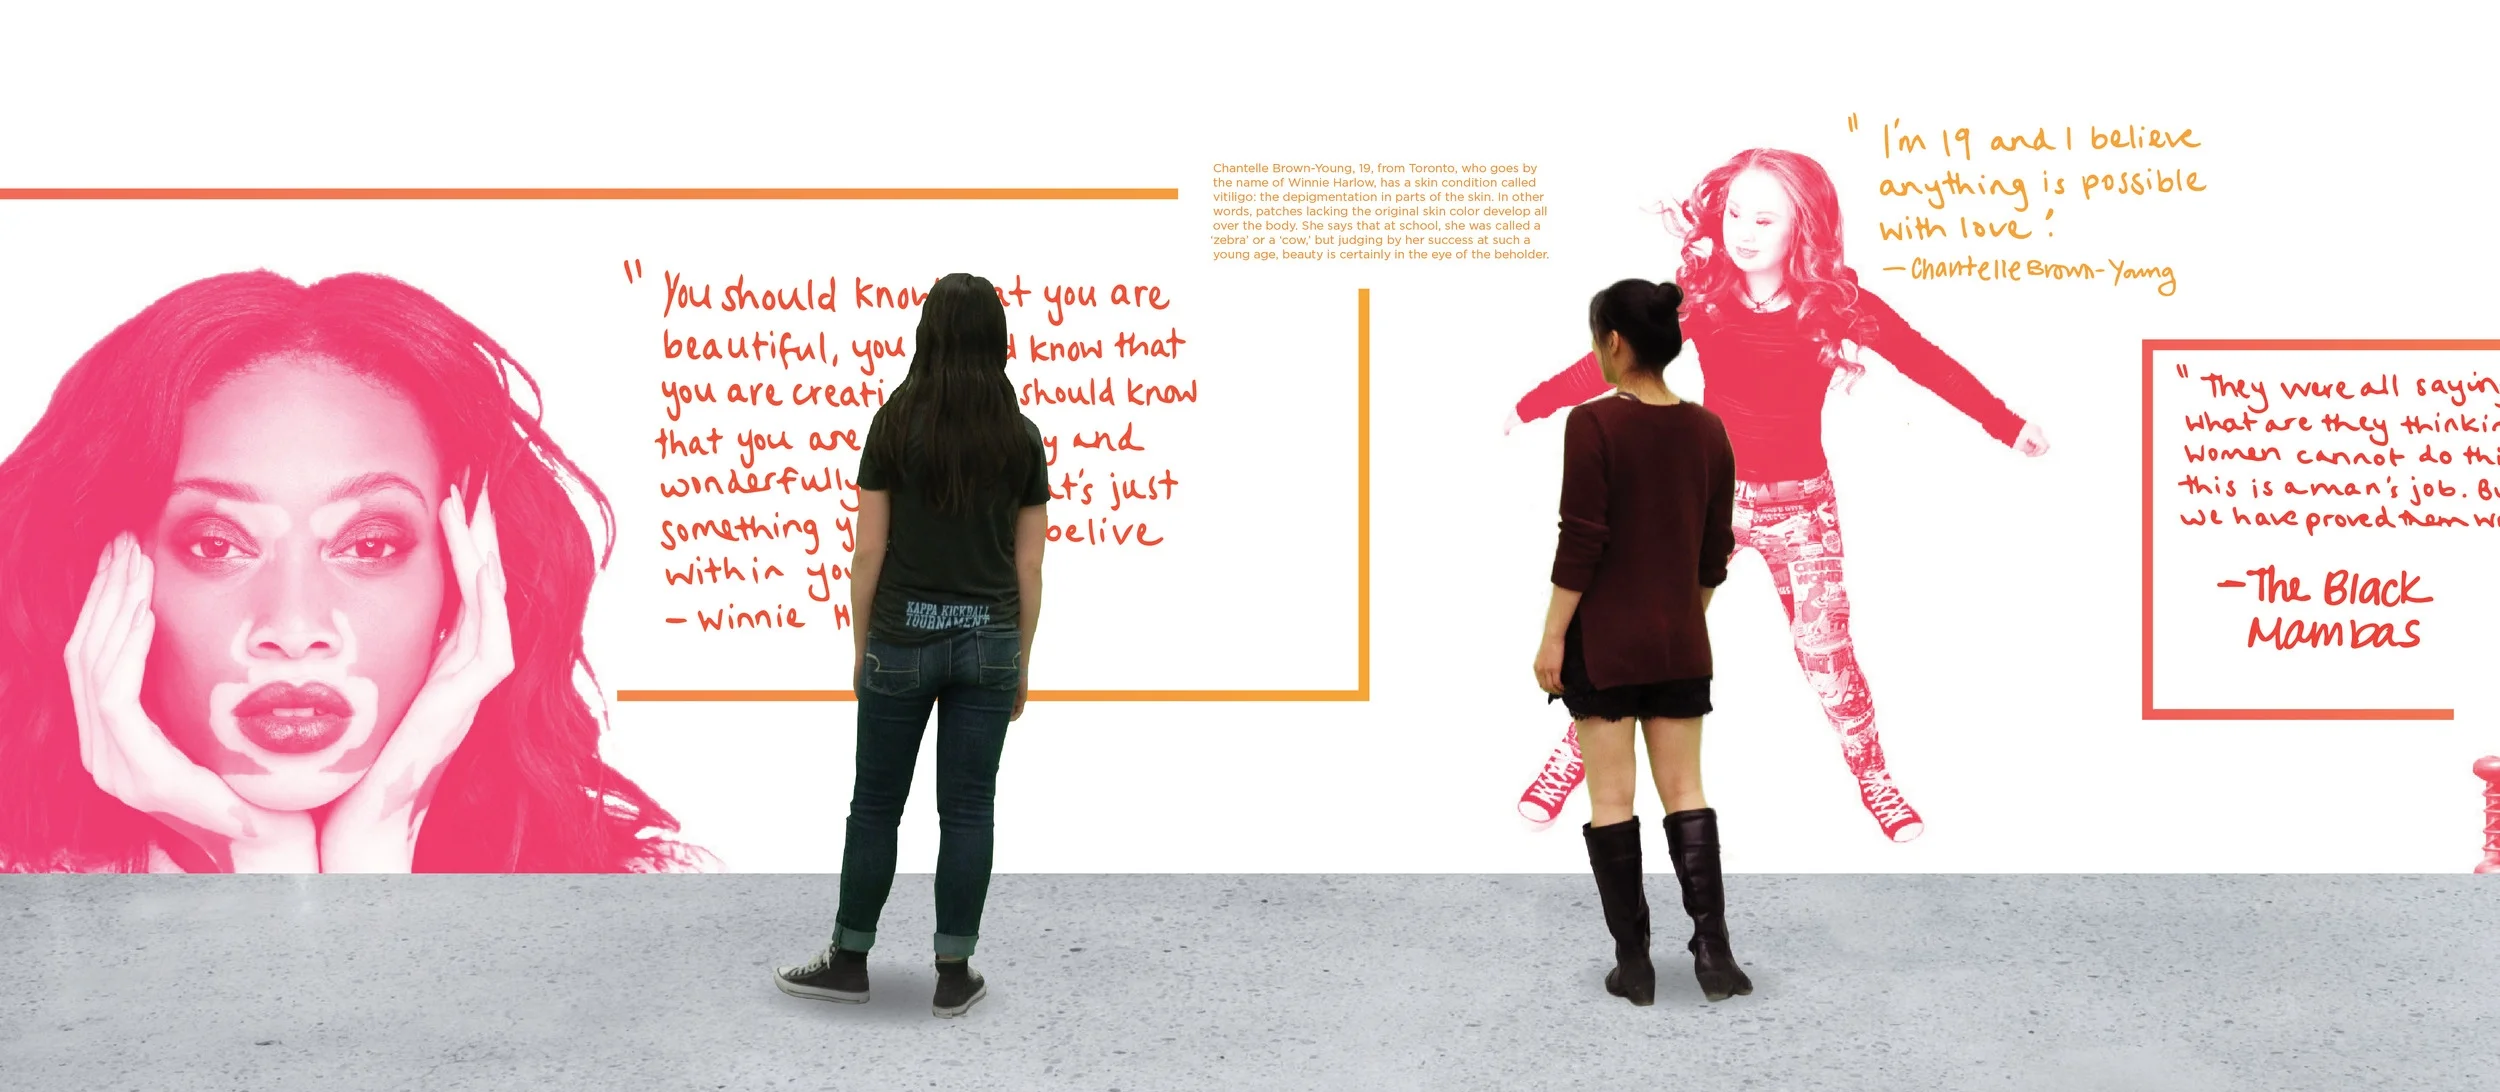 "You should know at you are
beautiful, you know that
you are creati should know
that you are y and
wonderfully at's just
something y belive
within you
– Winnie H
KAPPA KICKBALL
TOURNAMENT
Chantelle Brown-Young, 19, from Toronto, who goes by
the name of Winnie Harlow, has a skin condition called
vitiligo: the depigmentation in parts of the skin. In other
words, patches lacking the original skin color develop all
over the body. She says that at school, she was called a
'zebra' or a 'cow,' but judging by her success at such a
young age, beauty is certainly in the eye of the beholder.
"I'm 19 and I believe
anything is possible
with love."
– Chantelle Brown-Young
"They were all sayin
what are they thinkin
women cannot do thi
this is a man's job. Bu
we have proved them wr
– The Black
Mambas